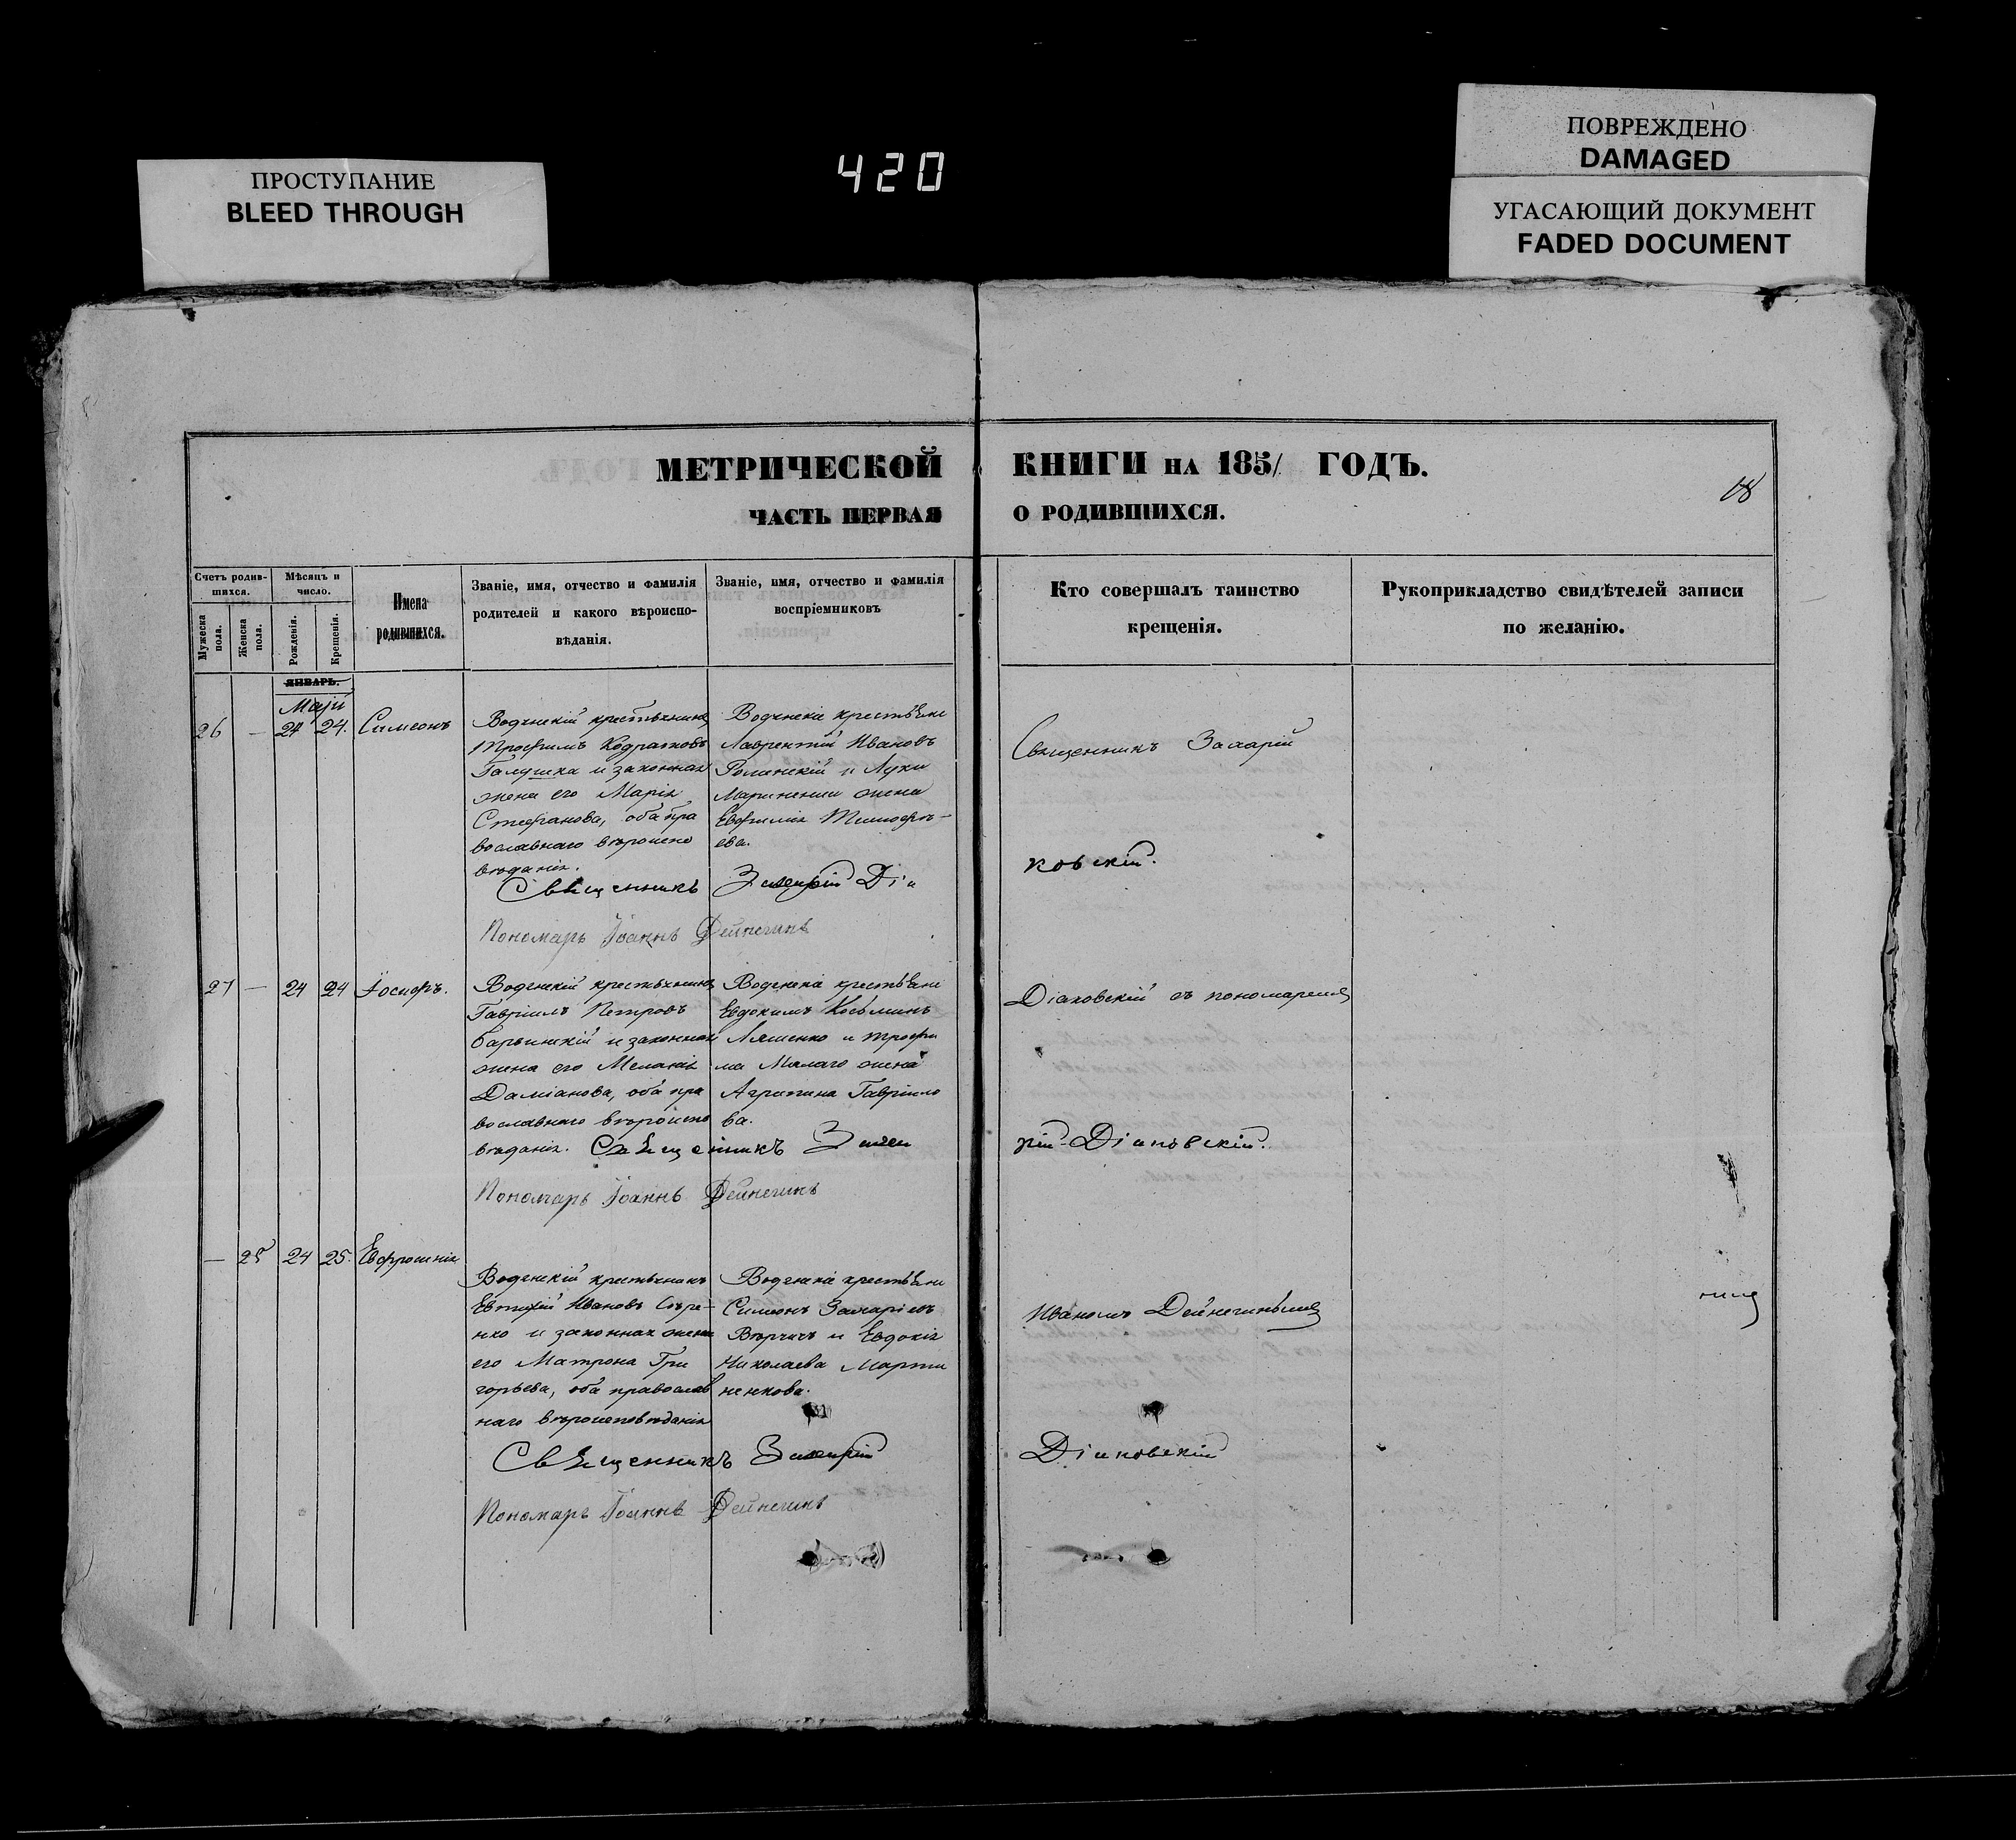 ПРОСТУПАНИЕ
BLEED THROUGH
420
ПОВРЕЖДЕНО
DAMAGED
УГАСАЮЩИЙ ДОКУМЕНТ
FADED DOCUMENT
МЕТРИЧЕСКОЙ КНИГИ НА 1851 ГОДЪ.
18
ЧАСТЬ ПЕРВАЯ О РОДИВШИХСЯ.
Счетъ родив-
шихся.
Мужеска пола.
Женска пола.
Мѣсяцъ и
число.
Рожденія.
Крещенія.
Имена
родившихся.
Званіе, имя, отчество и фамилія
родителей и какого вѣроиспо-
вѣданія.
Званіе, имя, отчество и фамилія
воспріемниковъ
Кто совершалъ таинство
крещенія.
Рукоприкладство свидѣтелей записи
по желанію.
ЯНВАРЬ.
26 — 24 24. Симеонъ
крестьянинъ
Трофимъ Кодратовъ
Галушка и законная
жена его Марія
Стефанова, оба пра
вославнаго вѣроиспо
вѣданія.
крестьяне
Лаврентій Ивановъ
и Луки
жена
Евфимія Тимофѣ-
ева.
Священникъ Захарій
Священникъ Захарій Діа
ковскій.
Пономарь Іоаннъ
27 — 24 24 Іосифъ.
крестьянинъ
Гавріилъ Петровъ
и законная
жена его Меланія
Даміанова, оба пра
вославнаго вѣроиспо
вѣданія.
крестьяне
Евдокимъ Косьминъ
Ляшенко и Трофи
ма Малаго жена
Агрипина Гавріило
ва.
Діаковскій съ пономаремъ
Священникъ Захарій Діаковскій.
Пономарь Іоаннъ
— 25 24 25. Евфросинія
крестьянинъ
Евтихій Ивановъ
нко и законная жена
его Матрона Гри
горьева, оба православ
наго вѣроисповѣданія
крестьяне
Симеонъ Захаріевъ
и Евдокія
Николаева Марти
ненкова.
Иваномъ
Священникъ Захарій Діаковскій
Пономарь Іоаннъ